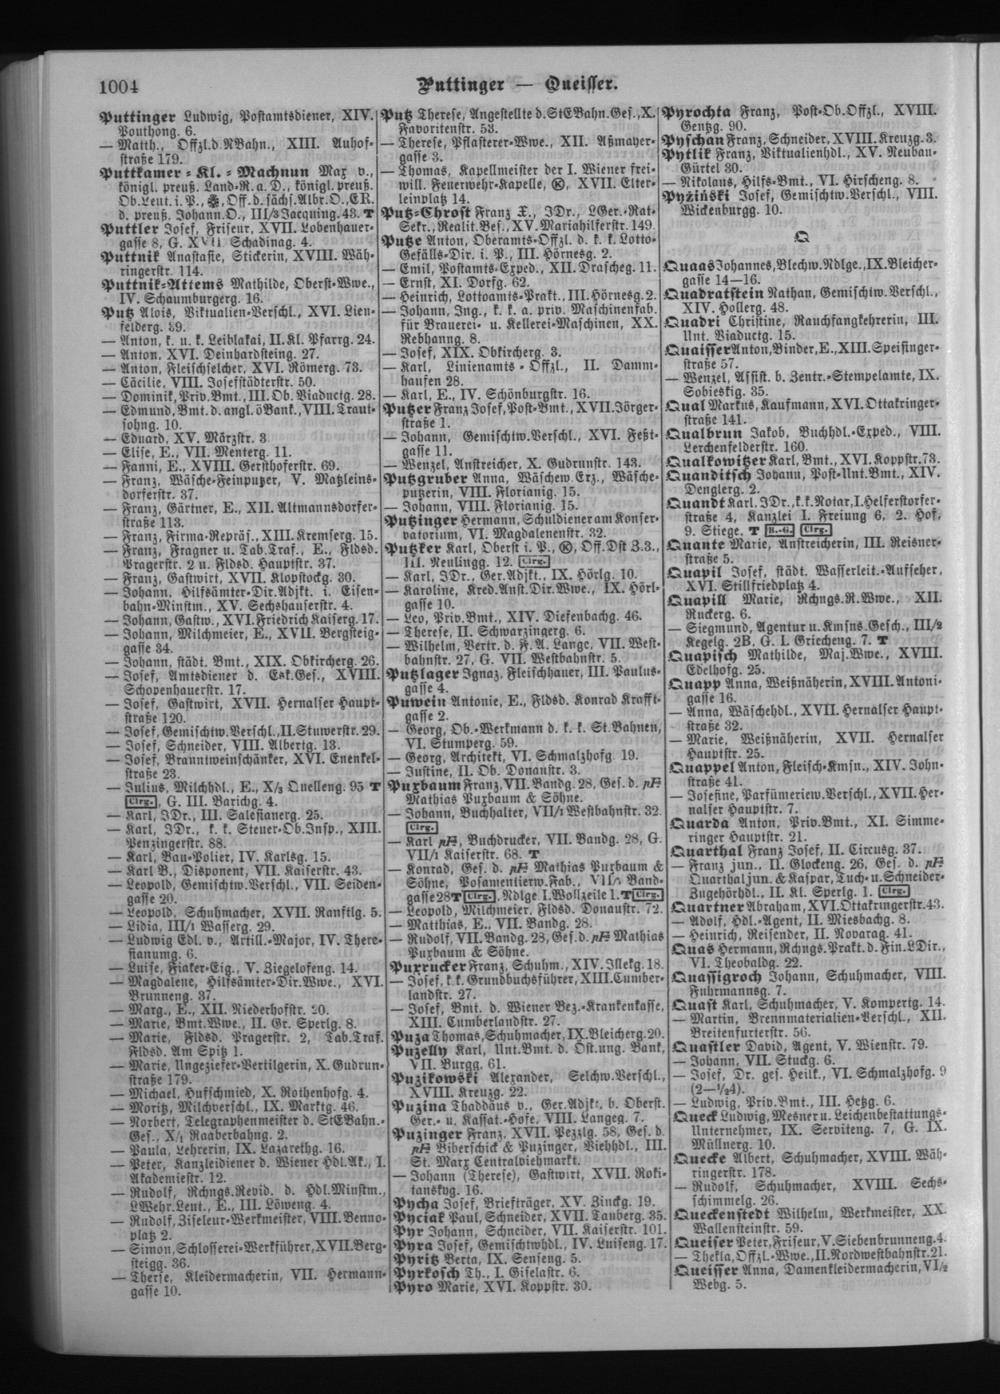 1004
Puttinger — Queisser.
Puttinger Ludwig, Postamtsdiener, XIV.
Pouthong. 6.
— Matth., Offzl.d.NBahn., XIII. Auhof-
straße 179.
Puttkamer-Kl.-Machnun Max v.,
königl. preuß. Land-R.a.D., königl.preuß.
Ob.Leut. i. P., Off.d.sächs.Albr.O., ER.
d. preuß. Johann.O., III/3 Jacquing.43. T
Puttler Josef, Friseur, XVII. Lobenhauer-
gasse 8, G. XVII Schadinag. 4.
Puttnik Anastasie, Stickerin, XVIII. Wäh-
ringerstr. 114.
Puttnik-Attems Mathilde, Oberst-Wwe.,
IV. Schaumburgerg. 16.
Putz Alois, Viktualien-Verschl., XVI. Lien-
felderg. 39.
— Anton, k. u. k. Leiblakai, II. Kl. Pfarrg. 24.
— Anton, XVI. Deinhardsteing. 27.
— Anton, Fleischselcher, XVI. Römerg. 73.
— Cäcilie, VIII. Josefstädterstr. 50.
— Dominik, Priv.Bmt., III. Ob. Viaductg. 28.
— Edmund, Bmt. d. angl. öBank., VIII. Traut-
sohng. 10.
— Eduard, XV. Märzstr. 3
— Elise, E., VII. Menterg. 11.
— Fanni, E., XVIII. Gersthoferstr. 69.
— Franz, Wäsche-Feinputzer, V. Matzleins-
dorferstr. 37.
— Franz, Gärtner, E., XII. Altmannsdorfer-
straße 113.
— Franz, Firma-Repräs., XIII. Kremserg. 15.
— Franz, Fragner u. Tab.Traf., E., Fldsd.
Pragerstr. 2 u. Fldsd. Hauptstr. 37.
— Franz, Gastwirt, XVII. Klopstockg. 30.
— Johann, Hilfsämter-Dir.Adjkt. i. Eisen-
bahn-Minstm., XV. Sechshauserstr. 4.
— Johann, Gastw., XVI. Friedrich Kaiserg. 17.
— Johann, Milchmeier, E., XVII. Bergsteig-
gasse 34.
— Johann, städt. Bmt., XIX. Obkircherg. 26.
— Josef, Amtsdiener d. Esk.Ges., XVIII.
Schopenhauerstr. 17.
— Josef, Gastwirt, XVII. Hernalser Haupt-
straße 120.
— Josef, Gemischtw.Verschl., II. Stuwerstr. 29.
— Josef, Schneider, VIII. Albertg. 13.
— Josef, Branntweinschänker, XVI. Enenkel-
straße 23.
— Julius, Milchhdl., E., X/3 Quelleng. 95 T
Clrg., G. III. Barichg. 4.
— Karl, JDr., III. Salesianerg. 25.
— Karl, JDr., k. k. Steuer-Ob.Insp., XIII.
Penzingerstr. 88.
— Karl, Bau-Polier, IV. Karlsg. 15.
— Karl B., Disponent, VII. Kaiserstr. 43.
— Leopold, Gemischtw.Verschl., VII. Seiden-
gasse 20.
— Leopold, Schuhmacher, XVII. Ranftlg. 5.
— Lidia, III/1 Wasserg. 29.
— Ludwig Edl. v., Artill.-Major, IV. There-
sianumg. 6.
— Luise, Fiaker-Eig., V. Ziegelofeng. 14.
— Magdalene, Hilfsämter-Dir.Wwe., XVI.
Brunneng. 37.
— Marg., E., XII. Niederhofstr. 20.
— Marie, Bmt.Wwe., II. Gr. Sperlg. 8.
— Marie, Fldsd. Pragerstr. 2, Tab.Traf.
Fldsd. Am Spitz 1.
— Marie, Ungeziefer-Vertilgerin, X. Gudrun-
straße 179.
— Michael, Hufschmied, X. Rothenhofg. 4.
— Moritz, Milchverschl., IX. Marktg. 46.
— Norbert, Telegraphenmeister d. StEBahn.-
Ges., X/1 Raaberbahng. 2.
— Paula, Lehrerin, IX. Lazarethg. 16.
— Peter, Kanzleidiener d. Wiener Hdl.Ak., I.
Akademiestr. 12.
— Rudolf, Rchngs.Revid. d. Hdl.Minstm.,
LWehr.Leut., E., III. Löweng. 4.
— Rudolf, Ziseleur-Werkmeister, VIII. Benno-
platz 2.
— Simon, Schlosserei-Werkführer, XVII. Berg-
steigg. 36.
— Therse, Kleidermacherin, VII. Hermann-
gasse 10.
Putz Therese, Angestellte d. StEBahn.Ges., X.
Favoritenstr. 53.
— Therese, Pflasterer-Wwe., XII. Aßmayer-
gasse 3.
— Thomas, Kapellmeister der I. Wiener frei-
will. Feuerwehr-Kapelle, Ⓚ, XVII. Elter-
leinplatz 14.
Putz-Chrost Franz X., JDr., LGer.-Rat-
Sekr., Realit.Bes., XV. Mariahilferstr. 149.
Putze Anton, Oberamts-Offzl. d. k. k. Lotto-
Gefälls-Dir. i. P., III. Hörnesg. 2.
— Emil, Postamts-Exped., XII. Drascheg. 11.
— Ernst, XI. Dorfg. 62.
— Heinrich, Lottoamts-Prakt., III. Hörnesg. 2.
— Johann, Ing., k. k. a. priv. Maschinenfab.
für Brauerei- u. Kellerei-Maschinen, XX.
Rebhanng. 8.
— Josef, XIX. Obkircherg. 3.
— Karl, Linienamts-Offzl., II. Damm-
haufen 28.
— Karl, E., IV. Schönburgstr. 16.
Putzer Franz Josef, Post-Bmt., XVII. Jörger-
straße 1.
— Johann, Gemischtw.Verschl., XVI. Feßt-
gasse 11.
— Wenzel, Anstreicher, X. Gudrunstr. 143.
Putzgruber Anna, Wäschew.Erz., Wäsche-
putzerin, VIII. Florianig. 15.
— Johann, VIII. Florianig. 15.
Putzinger Hermann, Schuldiener am Konser-
vatorium, VI. Magdalenenstr. 32.
Putzker Karl, Oberst i. P., Ⓚ, Off.Dst Z.3.,
III. Reulingg. 12. Clrg.
— Karl, JDr., Ger.Adjkt., IX. Hörlg. 10.
— Karoline, Kred.Anst.Dir.Wwe., IX. Hörl-
gasse 10.
— Leo, Priv.Bmt., XIV. Diefenbachg. 46.
— Therese, II. Schwarzingerg. 6.
— Wilhelm, Vertr. d. F. A. Lange, VII. West-
bahnstr. 27, G. VII. Westbahnstr. 5.
Putzlager Ignaz, Fleischhauer, III. Paulus-
gasse 4.
Puwein Antonie, E., Fldsd. Konrad Krafft-
gasse 2.
— Georg, Ob.-Werkmann d. k. k. St.Bahnen,
VI. Stumperg. 59.
— Georg, Architekt, VI. Schmalzhofg. 19.
— Justine, II. Ob. Donaustr. 3.
Puxbaum Franz, VII. Bandg. 28, Ges. d. pF
Mathias Puxbaum & Söhne.
— Johann, Buchhalter, VII/1 Westbahnstr. 32.
Clrg.
— Karl pF, Buchdrucker, VII. Bandg. 28, G.
VII/1 Kaiserstr. 68. T
— Konrad, Ges. d. pF Mathias Puxbaum &
Söhne, Posamentierw.Fab., VII/1 Band-
gasse 28 T Clrg., Ndlge. I. Wollzeile 1. T Clrg.
— Leopold, Milchmeier, Fldsd. Donaustr. 72.
— Matthias, E., VII. Bandg. 28.
— Rudolf, VII. Bandg. 28, Ges. d. pF Mathias
Puxbaum & Söhne.
Puxrucker Franz, Schuhm., XIV. Illekg. 18.
— Josef, k. k. Grundbuchsführer, XIII. Cumber-
landstr. 27.
— Josef, Bmt. d. Wiener Bez.-Krankenkasse,
XIII. Cumberlandstr. 27.
Puza Thomas, Schuhmacher, IX. Bleicherg. 20.
Puzelly Karl, Unt.Bmt. d. Öst.ung. Bank,
VII. Burgg. 61.
Puzikowski Alexander, Selchw.Verschl.,
XVIII. Kreuzg. 22.
Puzina Thaddäus v., Ger.Adjkt. b. Oberst.
Ger.- u. Kassat.-Hofe, VIII. Langeg. 7.
Puzinger Franz, XVII. Pezzlg. 58, Ges. d.
pF Biberschick & Puzinger, Viehhdl., III.
St. Marx Centralviehmarkt.
— Johann (Therese), Gastwirt, XVII. Roki-
tanskyg. 16.
Pycha Josef, Briefträger, XV. Zinckg. 19.
Pyciak Paul, Schneider, XVII. Tauberg. 35.
Pyr Johann, Schneider, VII. Kaiserstr. 101.
Pyra Josef, Gemischtwhdl., IV. Luiseng. 17.
Pyritz Berta, IX. Senseng. 5.
Pyrkosch Th., I. Giselastr. 6.
Pyro Marie, XVI. Koppstr. 30.
Pyrochta Franz, Post-Ob.Offzl., XVIII.
Gentzg. 90.
Pyschan Franz, Schneider, XVIII. Kreuzg. 3.
Pytlik Franz, Viktualienhdl., XV. Neubau-
Gürtel 30.
— Nikolaus, Hilfs-Bmt., VI. Hirscheng. 8.
Pyżiński Josef, Gemischtw.Verschl., VIII.
Wickenburgg. 10.
Q
Quaas Johannes, Blechw.Ndlge., IX. Bleicher-
gasse 14—16.
Quadratstein Nathan, Gemischtw.Verschl.,
XIV. Hollerg. 48.
Quadri Christine, Rauchfangkehrerin, III.
Unt. Viaductg. 15.
Quaisser Anton, Binder, E., XIII. Speisinger-
straße 57.
— Wenzel, Assist. b. Zentr.-Stempelamte, IX.
Sobieskig. 35.
Qual Markus, Kaufmann, XVI. Ottakringer-
straße 141.
Qualbrun Jakob, Buchhdl.-Exped., VIII.
Lerchenfelderstr. 160.
Qualkowitzer Karl, Bmt., XVI. Koppstr. 73.
Quanditsch Johann, Post-Unt.Bmt., XIV.
Denglerg. 2.
Quandt Karl, JDr., k. k. Notar, I. Helferstorfer-
straße 4, Kanzlei I. Freiung 6, 2. Hof,
9. Stiege. T K.-G. Clrg.
Quante Marie, Anstreicherin, III. Reisner-
straße 5.
Quapil Josef, städt. Wasserleit.-Aufseher,
XVI. Stillfriedplatz 4.
Quapill Marie, Rchngs.R.Wwe., XII.
Ruckerg. 6.
— Siegmund, Agentur u. Kmsns.Gesch., III/2
Kegelg. 2B, G. I. Griecheng. 7. T
Quapisch Mathilde, Maj.Wwe., XVIII.
Edelhofg. 25.
Quapp Anna, Weißnäherin, XVIII. Antoni-
gasse 16.
— Anna, Wäschehdl., XVII. Hernalser Haupt-
straße 32.
— Marie, Weißnäherin, XVII. Hernalser
Hauptstr. 25.
Quappel Anton, Fleisch-Kmsn., XIV. John-
straße 41.
— Josefine, Parfümeriew.Verschl., XVII. Her-
nalser Hauptstr. 7.
Quarda Anton, Priv.Bmt., XI. Simme-
ringer Hauptstr. 21.
Quarthal Franz Josef, II. Circusg. 37.
— Franz jun., II. Glockeng. 26, Ges. d. pF
Quarthal jun. & Kaspar, Tuch- u. Schneider-
Zugehörhdl., II. Kl. Sperlg. 1. Clrg.
Quartner Abraham, XVI. Ottakringerstr. 43.
— Adolf, Hdl.-Agent, II. Miesbachg. 8.
— Heinrich, Reisender, II. Novarag. 41.
Quas Hermann, Rchngs.Prakt. d. Fin.LDir.,
VI. Theobaldg. 22.
Quassigroch Johann, Schuhmacher, VIII.
Fuhrmannsg. 7.
Quast Karl, Schuhmacher, V. Kompertg. 14.
— Martin, Brennmaterialien-Verschl., XII.
Breitenfurterstr. 56.
Quastler David, Agent, V. Wienstr. 79.
— Johann, VII. Stuckg. 6.
— Josef, Dr. ges. Heilk., VI. Schmalzhofg. 9
(2—½4).
— Ludwig, Priv.Bmt., III. Hetzg. 6.
Queck Ludwig, Mesner u. Leichenbestattungs-
Unternehmer, IX. Serviteng. 7, G. IX.
Müllnerg. 10.
Quecke Albert, Schuhmacher, XVIII. Wäh-
ringerstr. 178.
— Rudolf, Schuhmacher, XVIII. Sechs-
schimmelg. 26.
Queckenstedt Wilhelm, Werkmeister, XX.
Wallensteinstr. 59.
Queiser Peter, Friseur, V. Siebenbrunneng. 4.
— Thekla, Offzl.-Wwe., II. Nordwestbahnstr. 21.
Queisser Anna, Damenkleidermacherin, VI/2
Webg. 5.